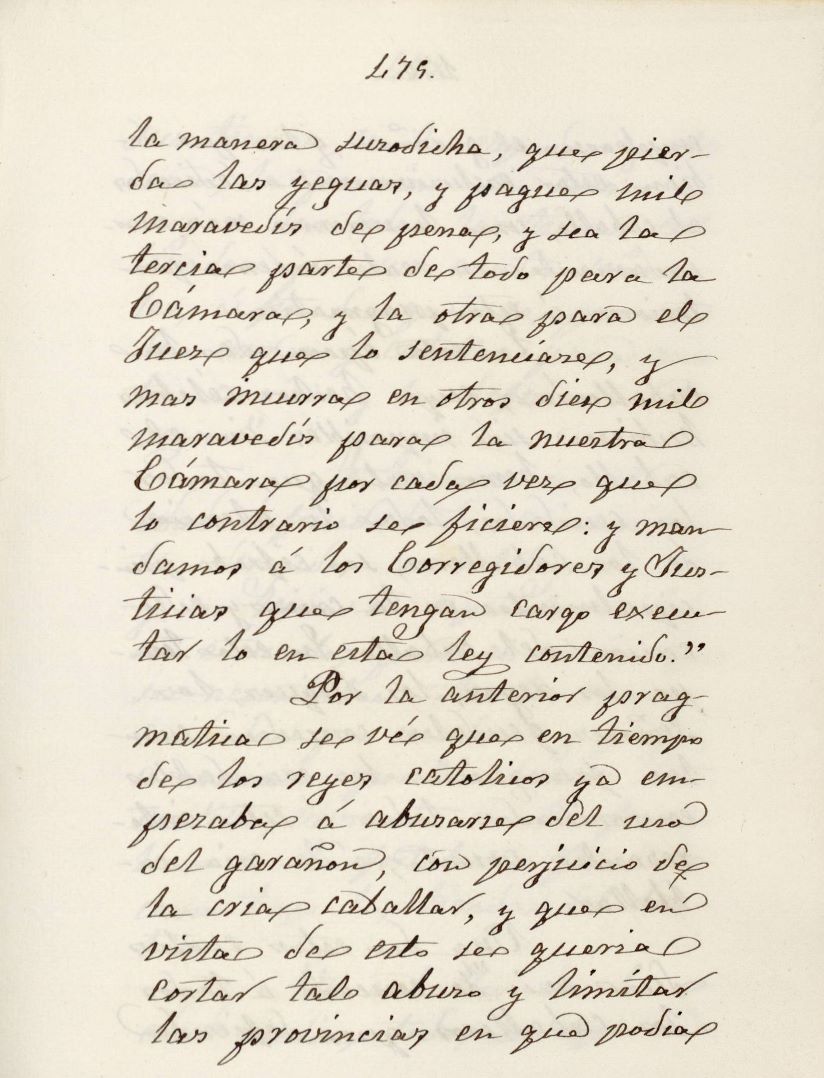 179.
la manera susodicha, que pier-
da las yeguas, y pague mil
maravedís de pena, y sea la
tercia parte de todo para la
Cámara, y la otra para el
Juez que lo sentenciare, y
mas incurra en otros diez mil
maravedís para la nuestra
Cámara por cada vez que
lo contrario se ficiere: y man-
damos á los Corregidores y Jus-
ticias que tengan cargo execu-
tar lo en esta ley contenido."
Por la anterior prag-
matica se vé que en tiempo
de los reyes catolicos ya em-
pezaba á abusarse del uso
del garañon, con perjuicio de
la cria caballar, y que en
vista de esto se queria
cortar tal abuso y limitar
las provincias en que podia